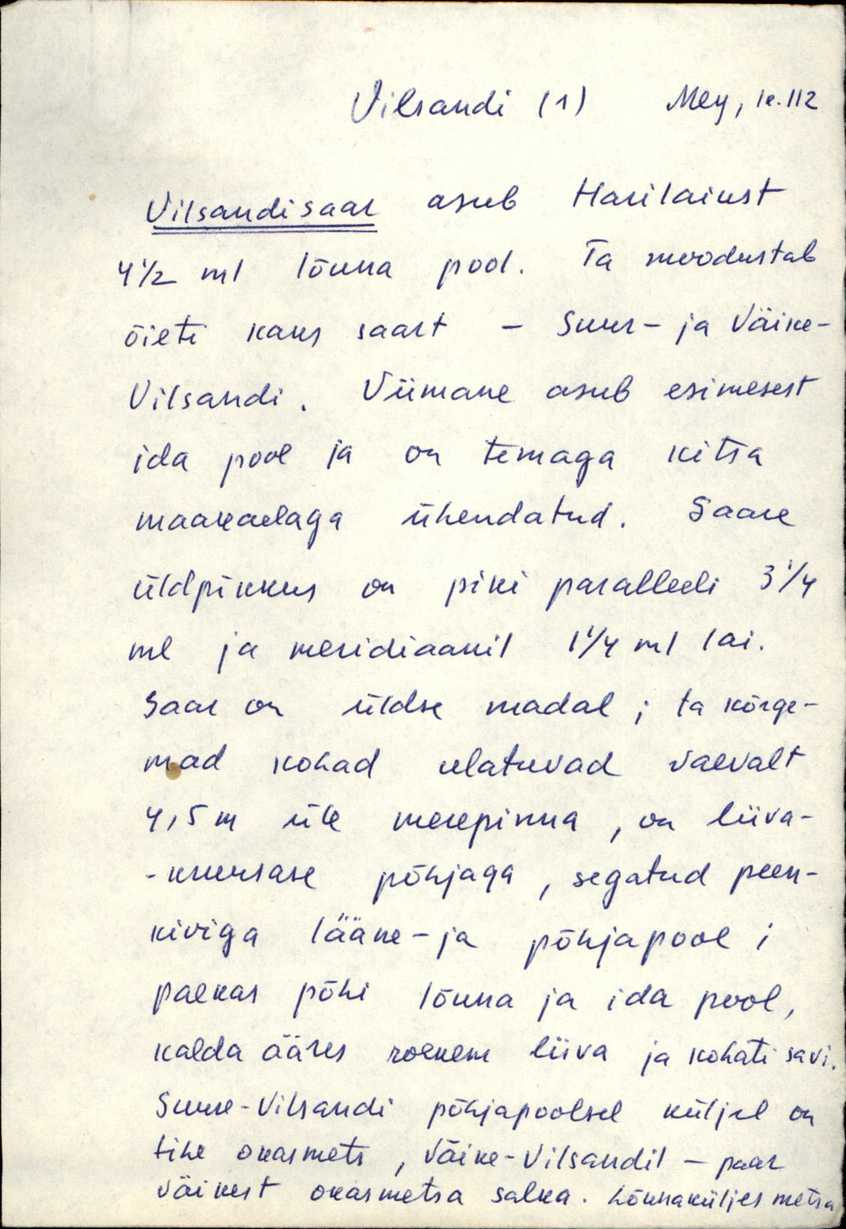 Vilsandi (1) Mey, lk. 112
Vilsandi saar asub Harilaiust
4 1/2 ml lõuna pool. Ta moodustab
õieti kaks saart – Suur- ja Väike-
Vilsandi. Viimane asub esimesest
ida pool ja on temaga kitsa
maakaelaga ühendatud. Saare
üldpikkus on piki paralleeli 3 1/4
ml ja meridiaanil 1 1/4 ml lai.
Saar on üldse madal; ta kõrge-
mad kohad ulatuvad vaevalt
4,5 m üle merepinna, on liiva-
-kruusase põhjaga, segatud peen-
kiviga lääne- ja põhjapool;
paekas põhi lõuna ja ida pool,
kalda ääres rohkem liiva ja kohati savi.
Suure-Vilsandi põhjapoolsel küljel on
tihe okasmets, Väike-Vilsandil – paar
väikest okasmetsa salka. Lõunaküljes metsa